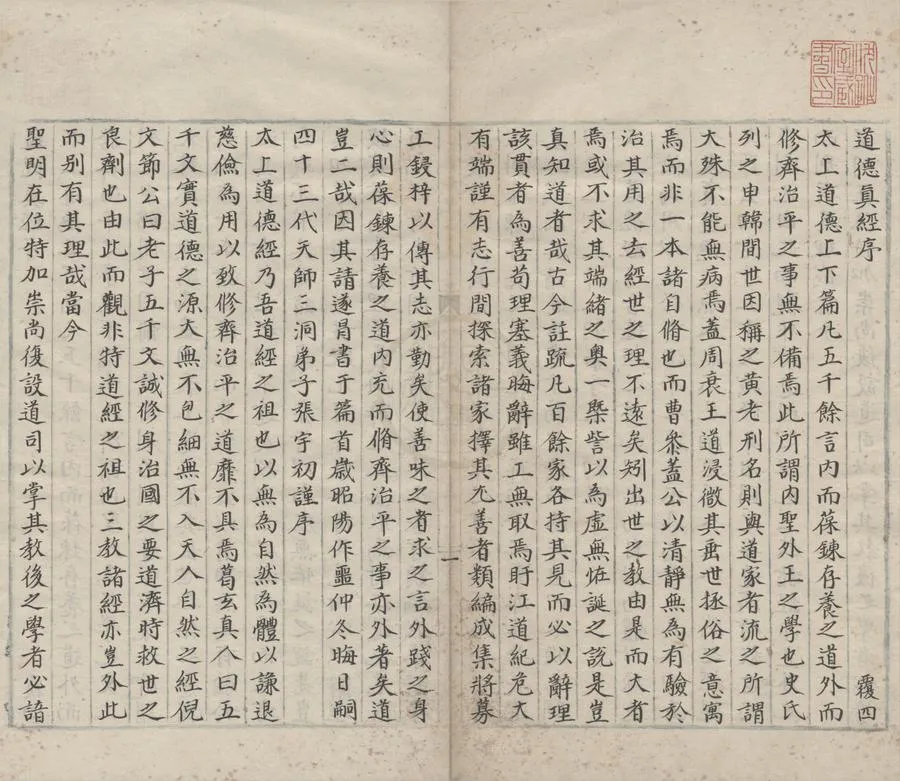 道德眞經序
覆四
太上道德上下篇凡五千餘言内而葆鍊存養之道外而
修齊治平之事無不備焉此所謂内聖外王之學也史氏
列之申韓間世因稱之黄老刑名則與道家者流之所謂
大殊不能無病焉盖周衰王道浸微其垂世拯俗之意寓
焉而非一本諸自脩也而曹參盖公以清靜無為有驗於
治其用之去經世之理不遠矣矧出世之教由是而大者
焉或不求其端緒之奥一槩訾以為虚無恠誕之說是豈
真知道者哉古今註疏凡百餘家各持其見而必以辭理
該貫者為善苟理塞義晦辭雖工無取焉盱江道紀危大
有端謹有志行間探索諸家擇其尤善者類編成集將募
一
工鋟梓以傳其志亦勤矣使善味之者求之言外踐之身
心則葆鍊存養之道内充而脩齊治平之事亦外著矣道
豈二哉因其請遂冐書于篇首歲昭陽作噩仲冬晦日嗣
四十三代天師三洞弟子張宇初謹序
太上道德經乃吾道經之祖也以無為自然為體以謙退
慈儉為用以致修齊治平之道靡不具焉葛玄真人曰五
千文實道德之源大無不包細無不入天人自然之經倪
文節公曰老子五千文誠修身治國之要道濟時救世之
良劑也由此而觀非特道經之祖也三教諸經亦豈外此
而别有其理哉當今
聖明在位特加崇尚復設道司以掌其教後之學者必諳